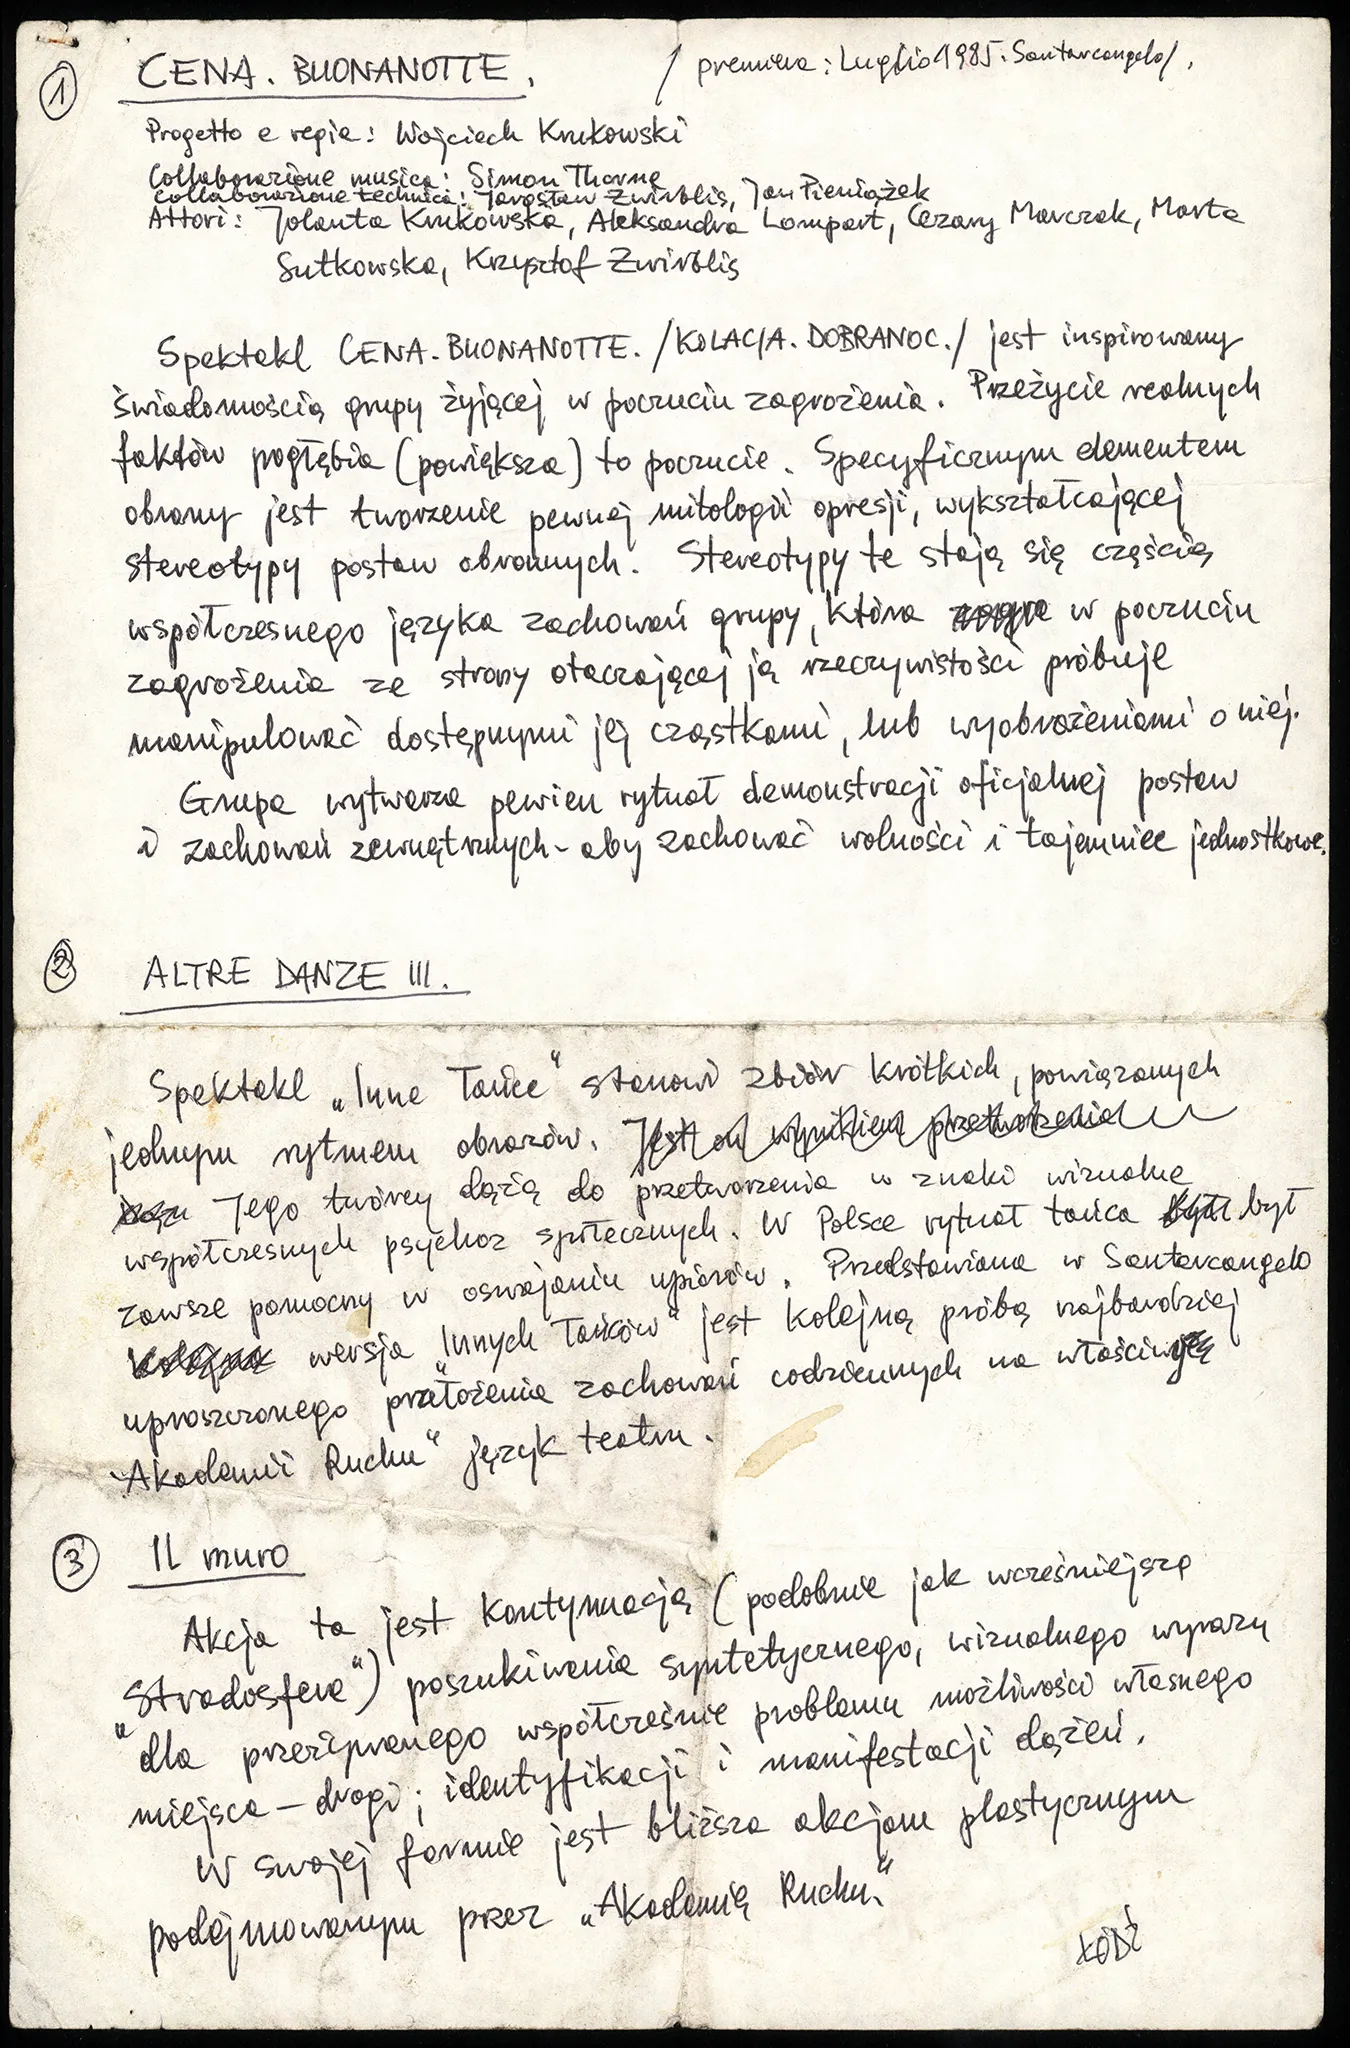 ① CENA. BUONANOTTE. / premiera: Luglio 1985. Santarcangelo/.
Progetto e regia: Wojciech Krukowski
Collaborazione musica: Simon Thorne
Collaborazione technica: Jarosław Żwirblis, Jan Pieniążek
Attori: Jolanta Krukowska, Aleksandra Lompart, Cezary Marczak, Marta
Sutkowska, Krzysztof Żwirblis
Spektakl CENA. BUONANOTTE. /KOLACJA. DOBRANOC./ jest inspirowany
świadomością grupy żyjącej w poczuciu zagrożenia. Przeżycie realnych
faktów pogłębia (powiększa) to poczucie. Specyficznym elementem
obrony jest tworzenie pewnej mitologii opresji, wykształcającej
stereotypy postaw obronnych. Stereotypy te stają się częścią
współczesnego języka zachowań grupy, która w poczuciu
zagrożenia ze strony otaczającej ją rzeczywistości próbuje
manipulować dostępnymi jej cząstkami, lub wyobrażeniami o niej.
Grupa wytwarza pewien rytuał demonstracji oficjalnej postaw
i zachowań zewnętrznych - aby zachować wolności i tajemnice jednostkowe.
② ALTRE DANZE III.
Spektakl „Inne Tańce" stanowi zbiór krótkich, powiązanych
jednym rytmem obrazów. Jest on wynikiem przetworzenia
Jego twórcy dążą do przetworzenia w znaki wizualne
współczesnych psychoz społecznych. W Polsce rytuał tańca był
zawsze pomocny w oswajaniu upiorów. Przedstawiana w Santarcangelo
kolejna wersja „Innych Tańców" jest kolejną próbą najbardziej
uproszczonego przełożenia zachowań codziennych na właściwy
„Akademii Ruchu" język teatru.
③ IL muro
Akcja ta jest kontynuacją (podobnie jak wcześniejsza
„Stradosfera") poszukiwania syntetycznego, wizualnego wyrazu
dla przeżywanego współcześnie problemu możliwości własnego
miejsca – drogi; identyfikacji i manifestacji dążeń.
W swojej formie jest bliższa akcjom plastycznym
podejmowanym przez „Akademię Ruchu."
ŁÓDŹ